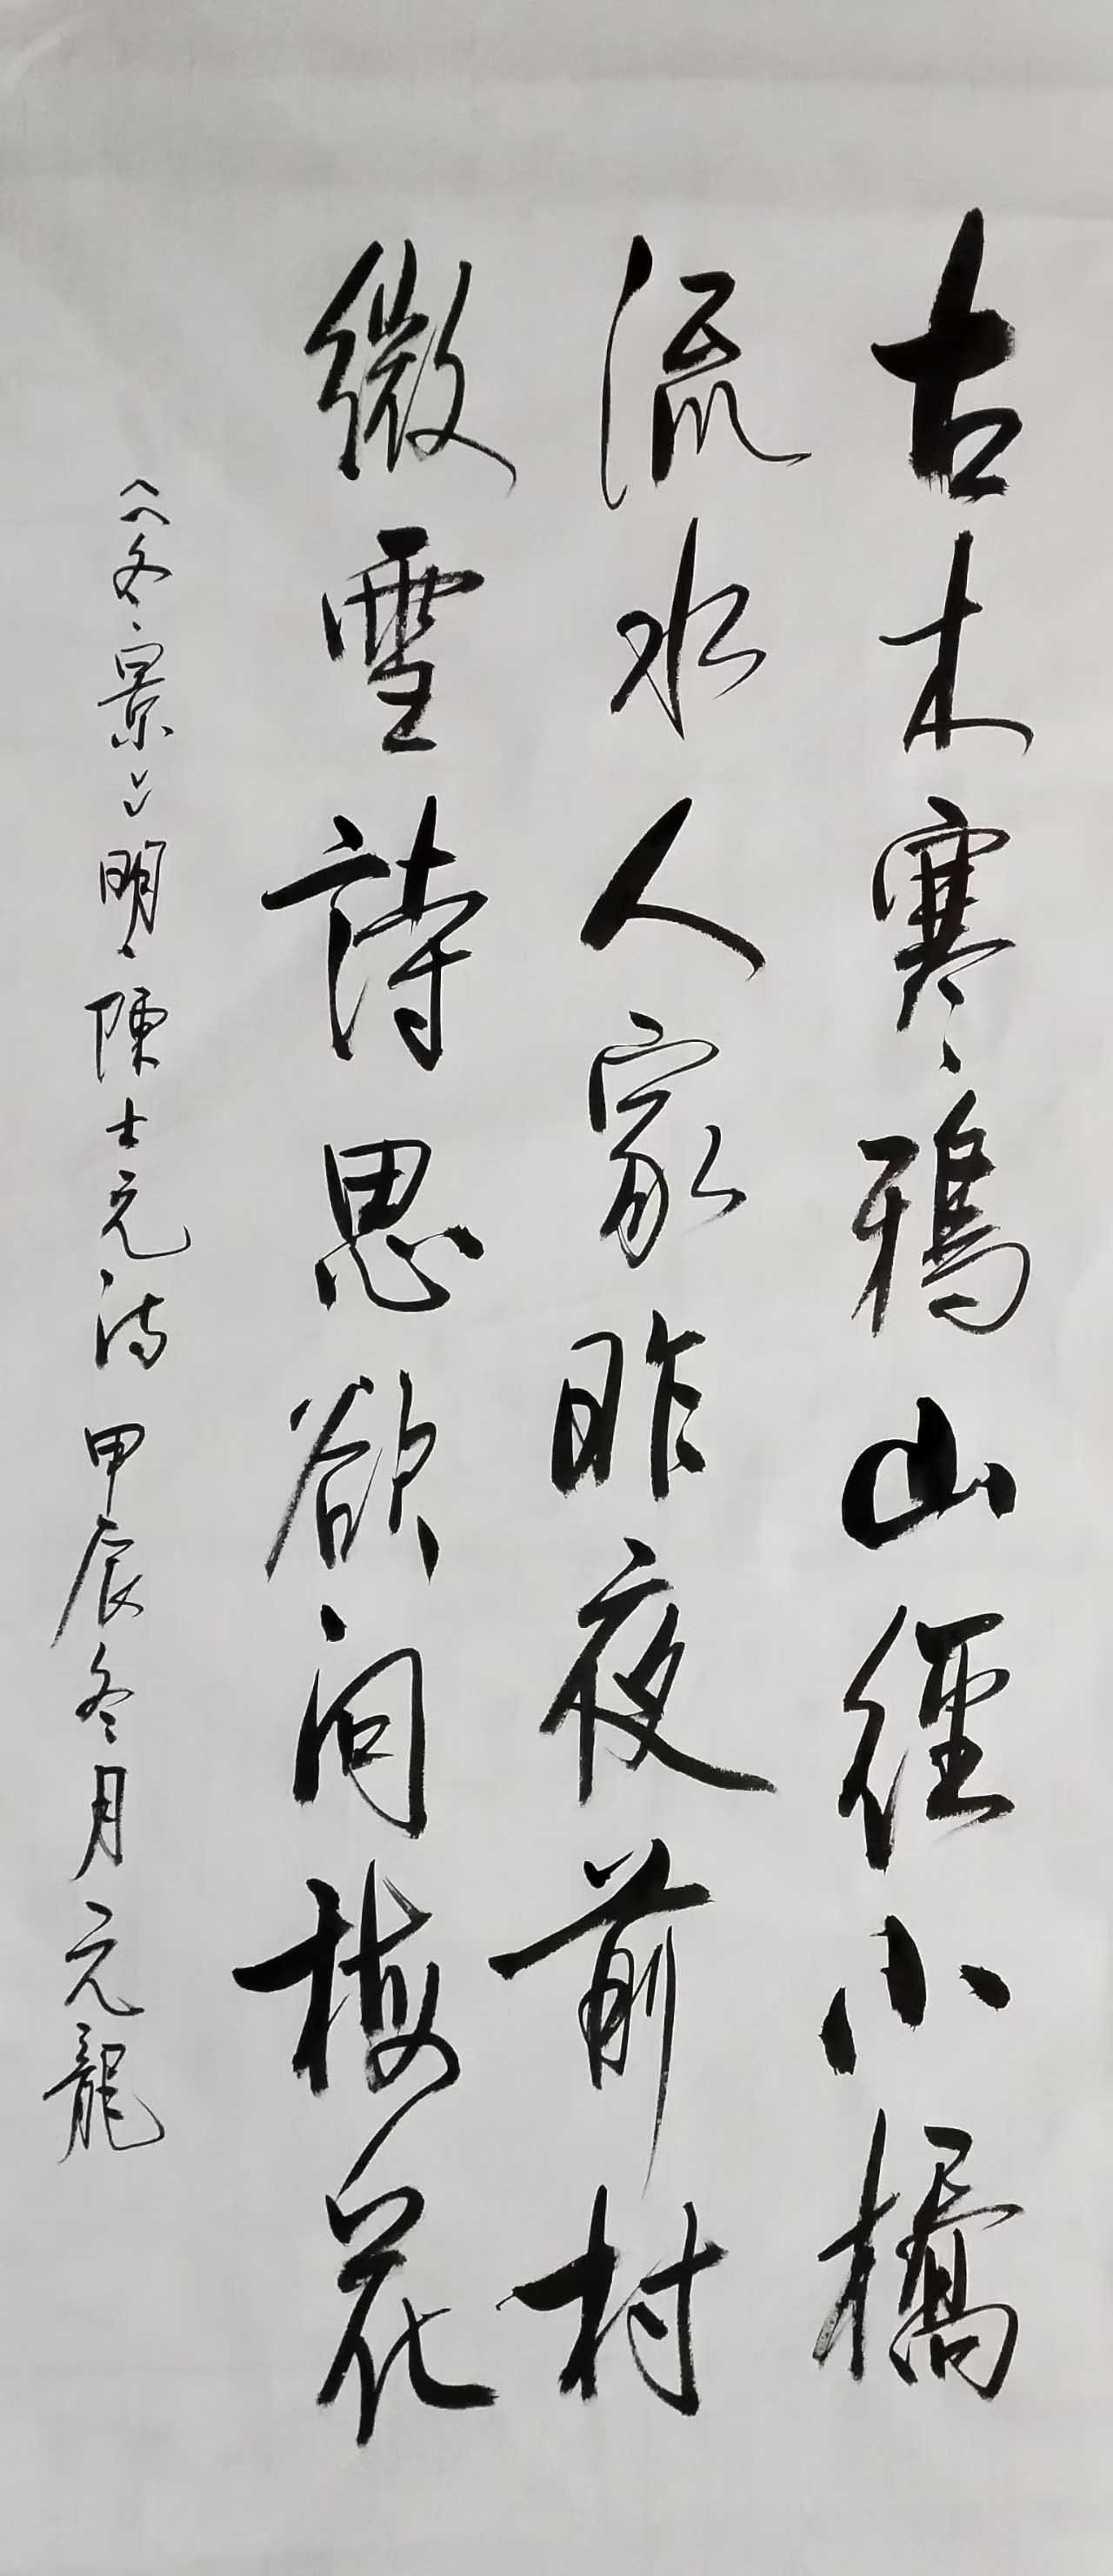 古木寒鴉山徑小橋
流水人家昨夜前村
微雪詩思欲问梅花
《冬景》明陳士元詩甲辰冬月元龍